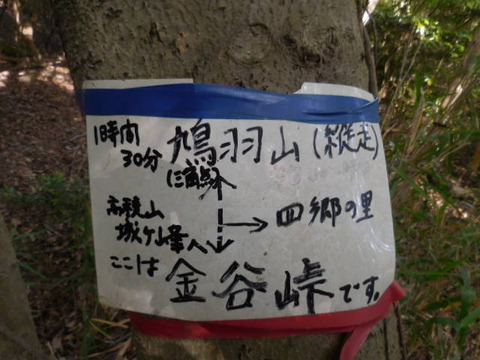 1時間
30分
鳩羽山(縦走)
(三角点)
高旗山
城ケ峰へ
四郷の里
ここは
金谷峠です。